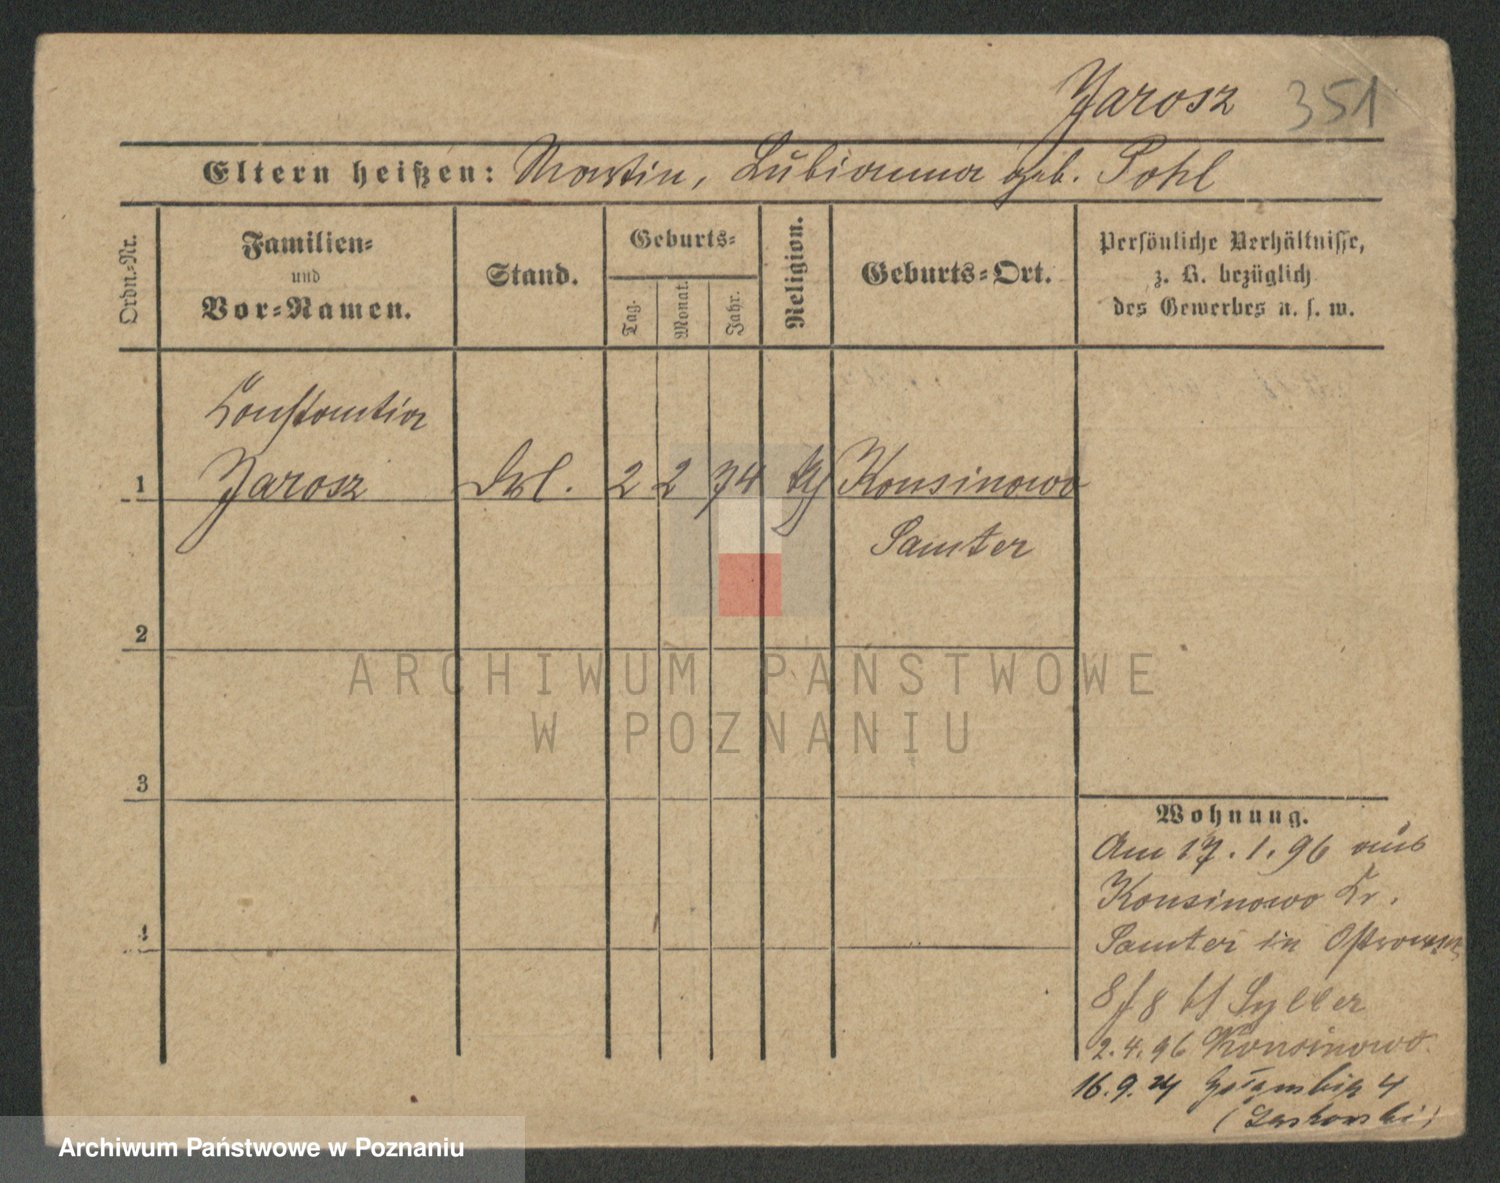 Jarosz 351
Eltern heißen: Martin, Lubianna geb. Pohl
Ordn.-Nr.
Familien-
und
Vor-Namen.
Stand.
Geburts-
Tag.
Monat.
Jahr.
Religion.
Geburts-Ort.
Persönliche Verhältnisse,
z. B. bezüglich
des Gewerbes u. s. w.
Constantia
1 Jarosz 2 2 74 Konsinowo
Samter
2
3
4
Wohnung.
Am 17.1.96 aus
Konsinowo Kr.
Samter in
8 Syller
2.4.96 Konsinowo
16.9. 4
ARCHIWUM PAŃSTWOWE
W POZNANIU
Archiwum Państwowe w Poznaniu